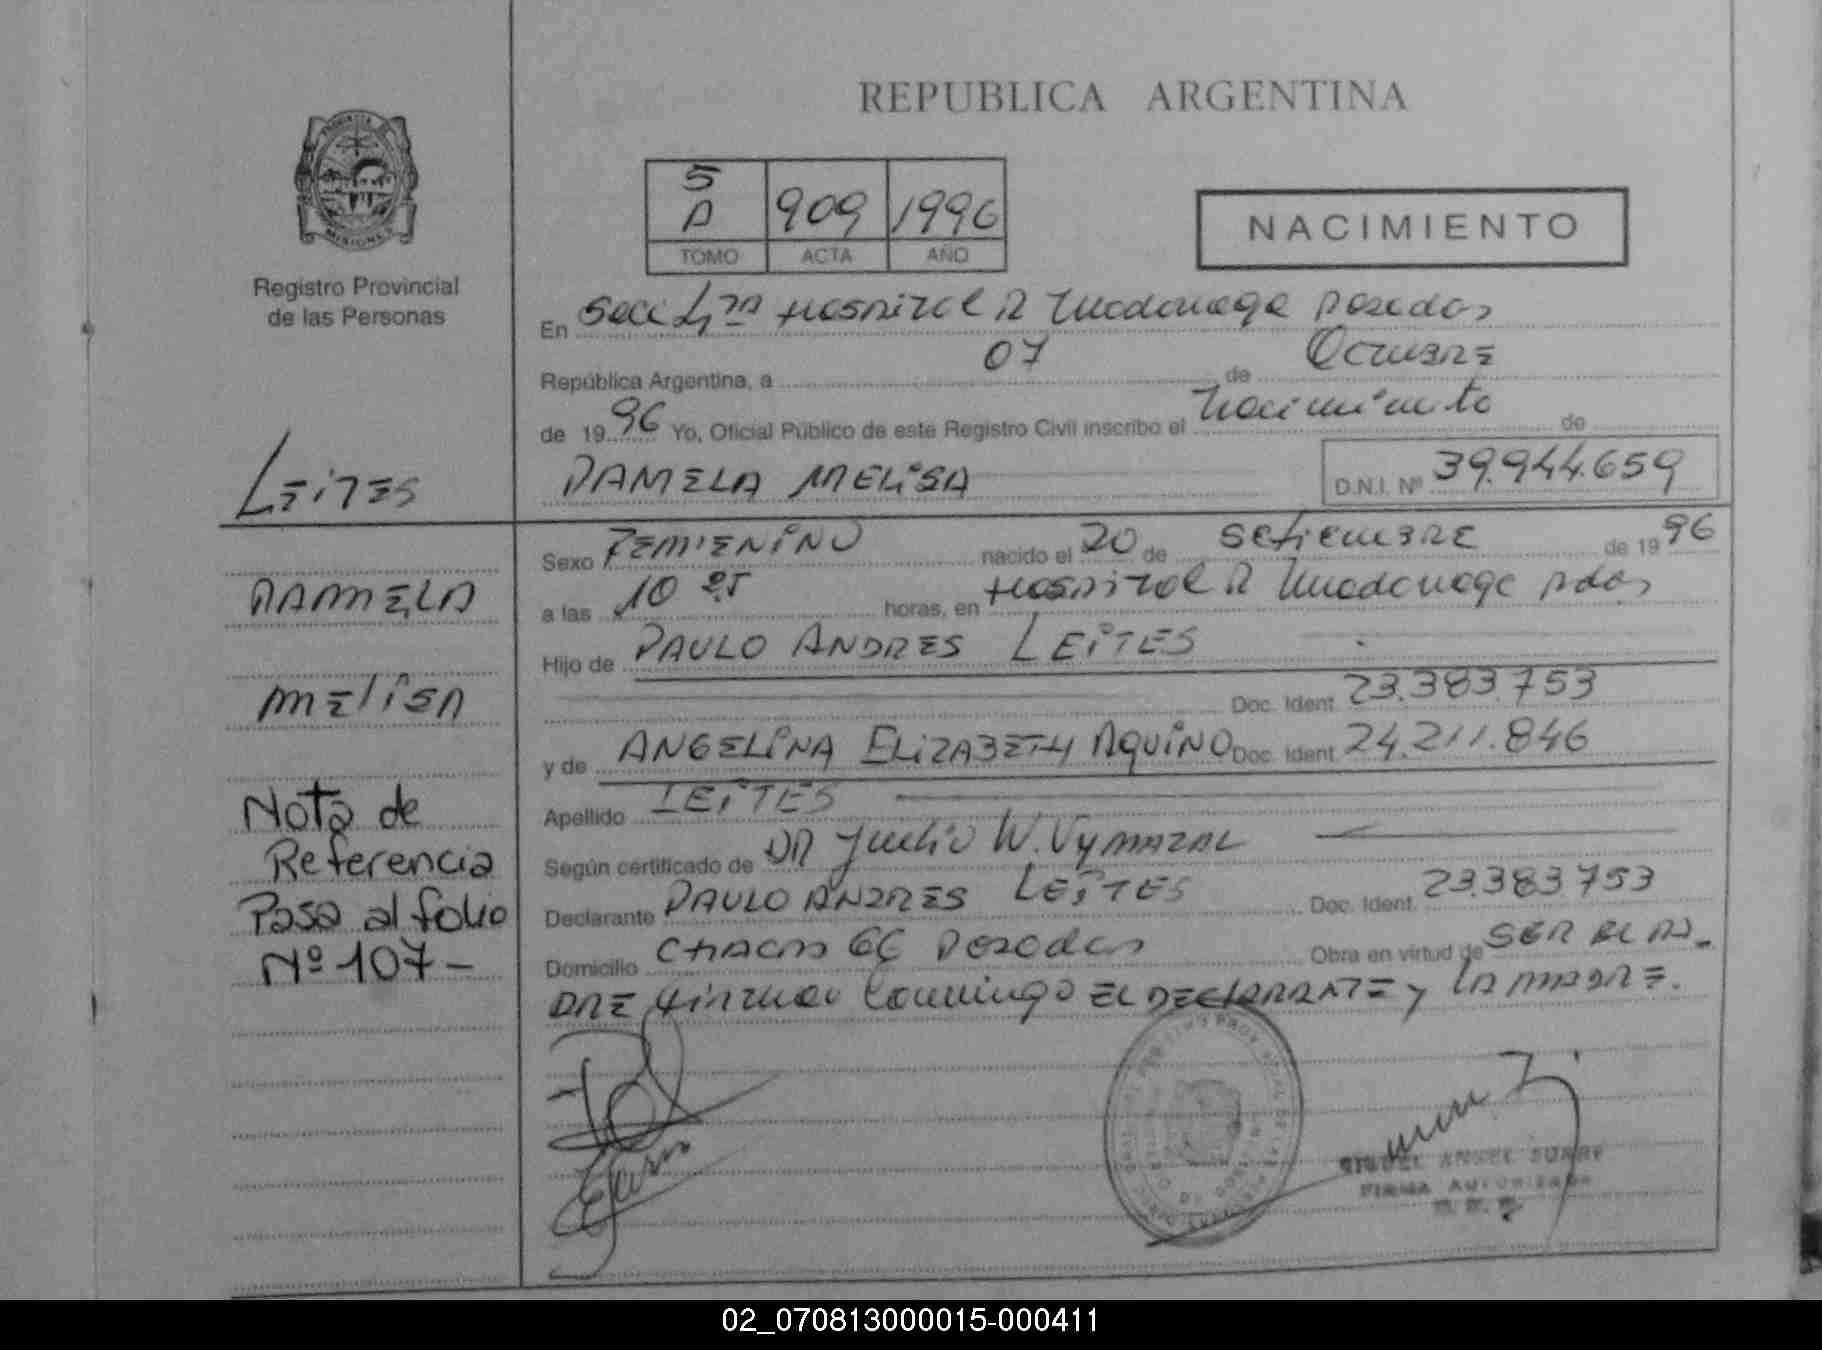 REPUBLICA ARGENTINA
5
A 909 1996
TOMO ACTA AÑO
NACIMIENTO
PROVINCIA DE
MISIONES
Registro Provincial
de las Personas
En Secc Hospital R Madariaga Posadas
República Argentina, a 07 de Octubre
de 1996 Yo, Oficial Público de este Registro Civil inscribo el Nacimiento de
PAMELA MELISA D.N.I. Nº 39.944.659
LEITES
PAMELA
MELISA
Nota de
Referencia
Pasa al folio
Nº 107-
Sexo FEMENINO nacido el 20 de Setiembre de 1996
a las 10 horas, en Hospital R Madariaga Pdas
Hijo de PAULO ANDRES LEITES
Doc. Ident. 23.383.753
y de ANGELINA ELIZABETH AQUINO Doc. Ident. 24.211.846
Apellido LEITES
Según certificado de DR Julio W. VYMAZAL
Declarante PAULO ANDRES LEITES Doc. Ident. 23.383.753
Domicilio CHACRA 66 Posadas Obra en virtud de SER EL PA-
DRE Firman Conmigo EL DECLARANTE y LA MADRE.
MIGUEL ANGEL
FIRMA AUTORIZADA
02_070813000015-000411